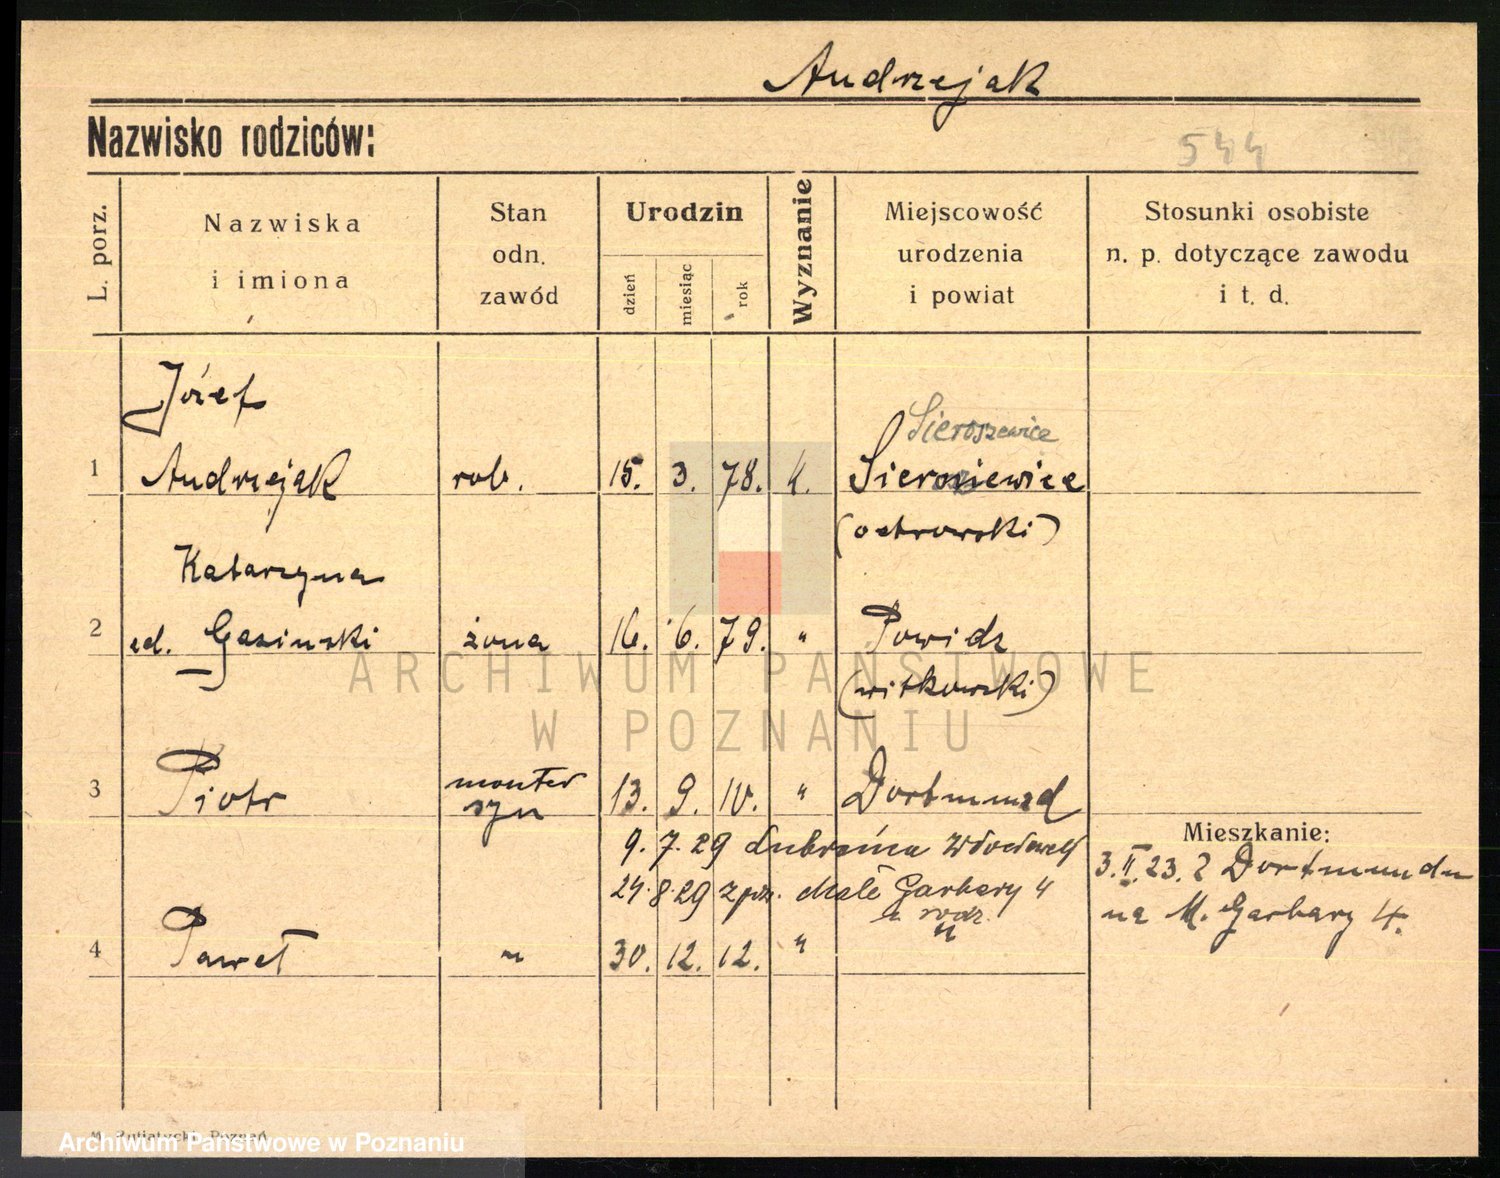 Andrzejak
Nazwisko rodziców:
544
L. porz.
Nazwiska
i imiona
Stan
odn.
zawód
Urodzin
dzień
miesiąc
rok
Wyznanie
Miejscowość
urodzenia
i powiat
Stosunki osobiste
n. p. dotyczące zawodu
i t. d.
Józef
Sieroszewice
1 Andrzejak rob. 15. 3. 78. k.
(ostrowski)
Katarzyna
2 Gasinski żona 16. 6. 79. " Powidz
(witkowski)
monter
3 Piotr syn 13. 9. 10. " Dortmund
Mieszkanie:
9. 7. 29
3.II.23. z Dortmundu
24.8.29 Małe Garbary 4
na M. Garbary 4.
u rodz.
4 Paweł " 30. 12. 12. " "
ARCHIWUM PAŃSTWOWE
W POZNANIU
M. Putiatycki, Poznań
Archiwum Państwowe w Poznaniu